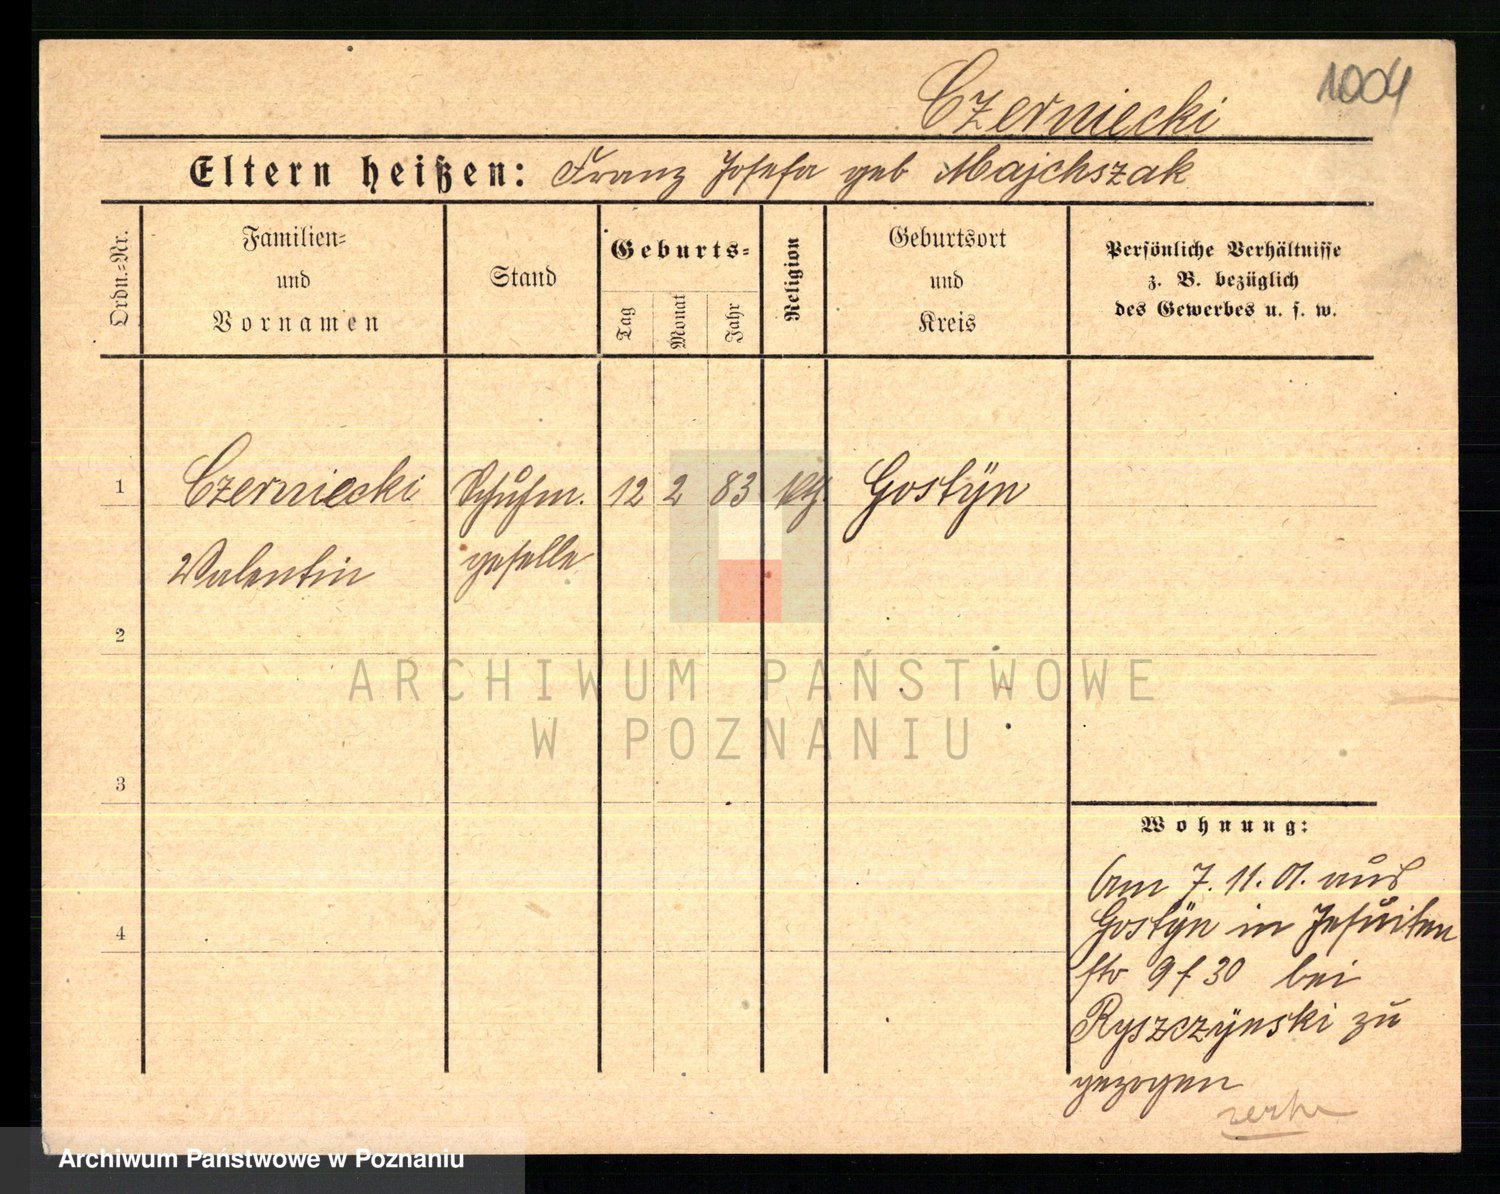 1004
Czerniecki
Eltern heißen: Franz Josefa geb Majchszak
Ordn.-Nr.
Familien-
und
Vornamen
Stand
Geburts-
Tag
Monat
Jahr
Religion
Geburtsort
und
Kreis
Persönliche Verhältnisse
z. B. bezüglich
des Gewerbes u. s. w.
1 Czerniecki Schuhm. 12 2 83 kth Gostÿn
Valentin geselle
2
3
4
Wohnung:
Am 7.11.01. aus
Gostÿn in Jesuiten
str 9 f 30 bei
Ryszczÿnski zu
gezogen
ARCHIWUM PAŃSTWOWE
W POZNANIU
Archiwum Państwowe w Poznaniu